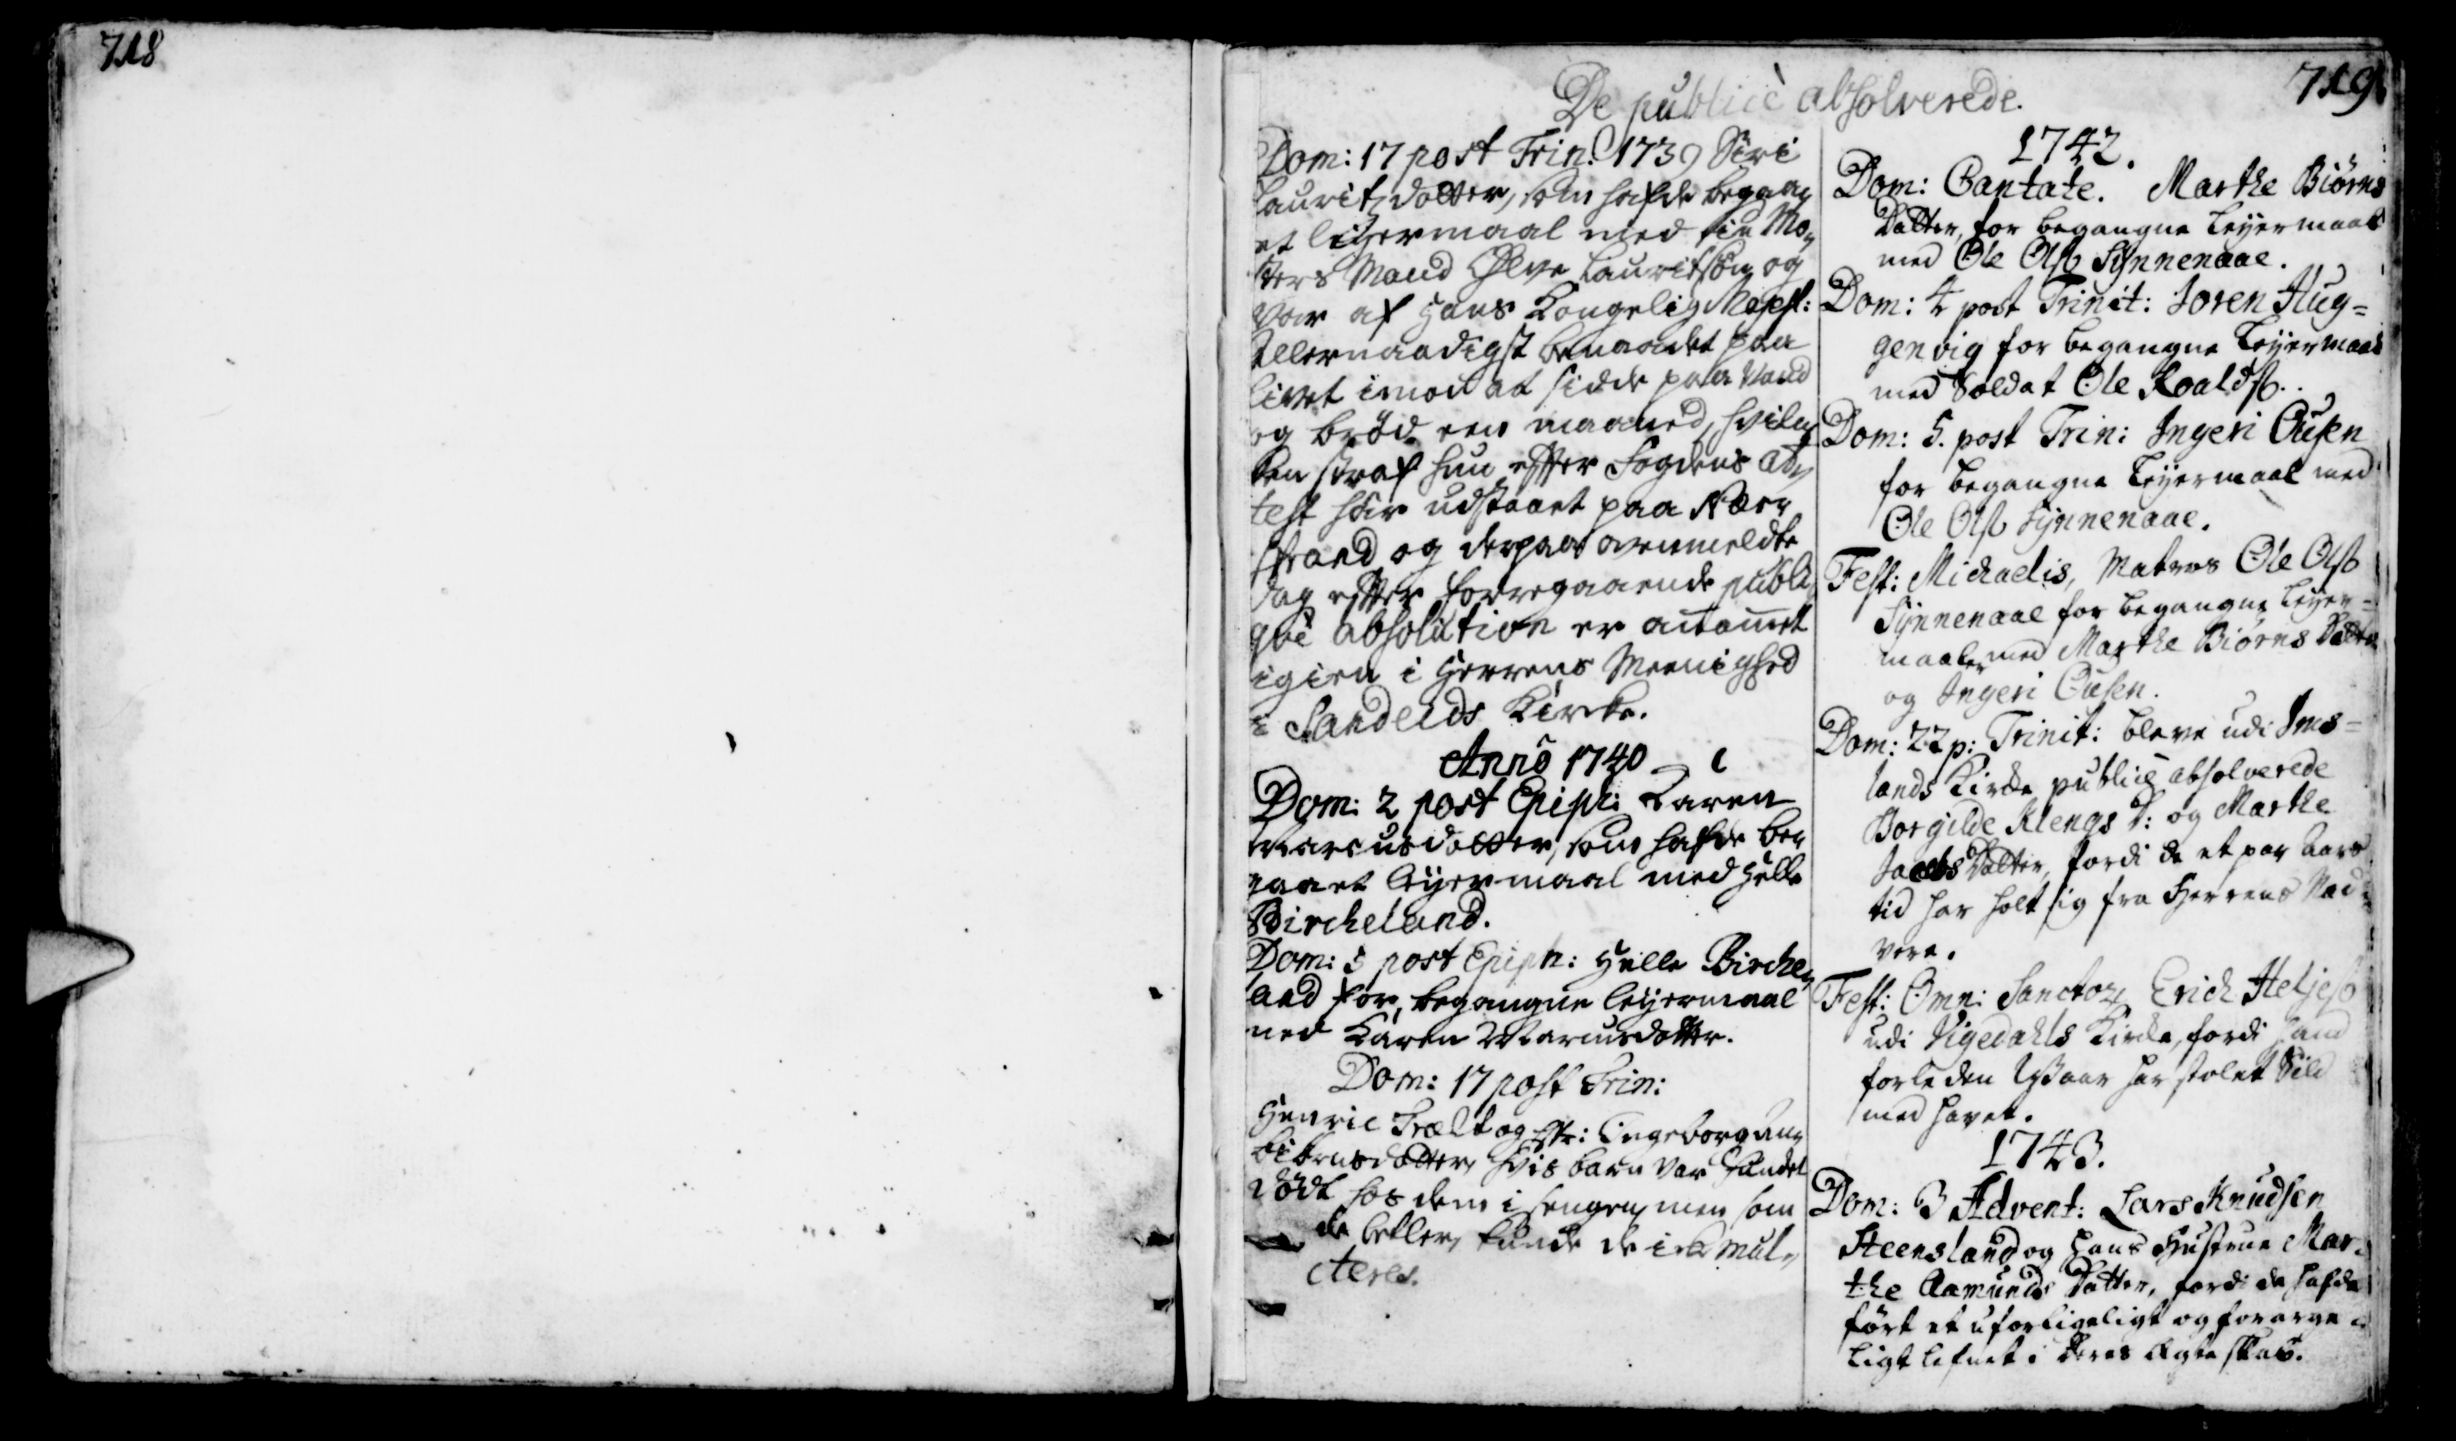 718
719
De publicè absolverede.
Dom: 17 post Trin: 1739 Siri
Lauritzdatter, som hafde begaaet
et lejermaal med sin Mo-
sters Mand Ølve Lauritsøn og
var af Hans Kongelig Mayst:
Allernaadigst benaadet paa
livet imod at sidde paa Vand
og brød een maaned, hvil-
ken straf hun efter Fogdens At-
test har udstaaet paa Nær-
strand og derpaa ovenmeldte
dag efter foregaaende publi-
què absolution er antaget
igien i Herrens Meenighed
i Sandeids Kircke.
Anno 1740
Dom: 2 post Epiph: Karen
Marcusdatter, som hafde be-
gaaet lejermaal med Helle
Bircheland.
Dom: 5 post Epiph: Helle Birche-
land for begangne lejermaal
med Karen Marcusdatter.
Dom: 17 post Trin:
Henric og Ingeborg
datter, hvis barn var fundet
dødt hos dem i sengen, men som
de betler, kunde de ick mul-
cteres.
1742.
Dom: Cantate. Marthe Biørns
Datter, for begangne Leyermaal
med Ole Olss Synnenaae.
Dom: 4 post Trinit: Soren Hug=
genvig for begangne Leyermaal
med Soldat Ole Roaldss.
Dom: 5. post Trin: Ingeri Ousen
for begangne Leyermaal med
Ole Olss Synnenaae.
Fest: Michaelis, Matros Ole Olss
Synnenaae for begangne Leyer=
maaler med Marthe Biørns Datter
og Ingeri Ousen.
Dom: 22 p: Trinit: bleve udi Ims=
lands Kirke publicè absolverede
Borgilde Klengs D: og Marthe
Jacobs Datter, fordi de et par Aars
tid har holt sig fra Herrens Nad=
vere.
Fest: Omn: Sanctor, Erich Heljess
udi Vigedahls Kirke, fordi hand
forleden Aar har stolet Sild
med Havet.
1743.
Dom: 3 Advent: Lars Knudsen
Steensland og Hans Hustrue Mar=
the Aamunds Datter, fordi de hafde
ført et uforligeligt og forarge=
ligt lefnet i deres Ægteskab.